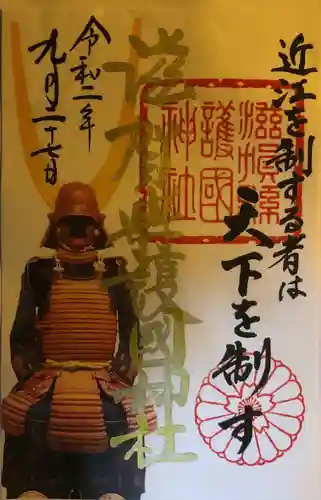 近江を制する者は
天下を制す
滋賀縣護國神社
滋賀縣
護國
神社
令和二年
九月二十七日